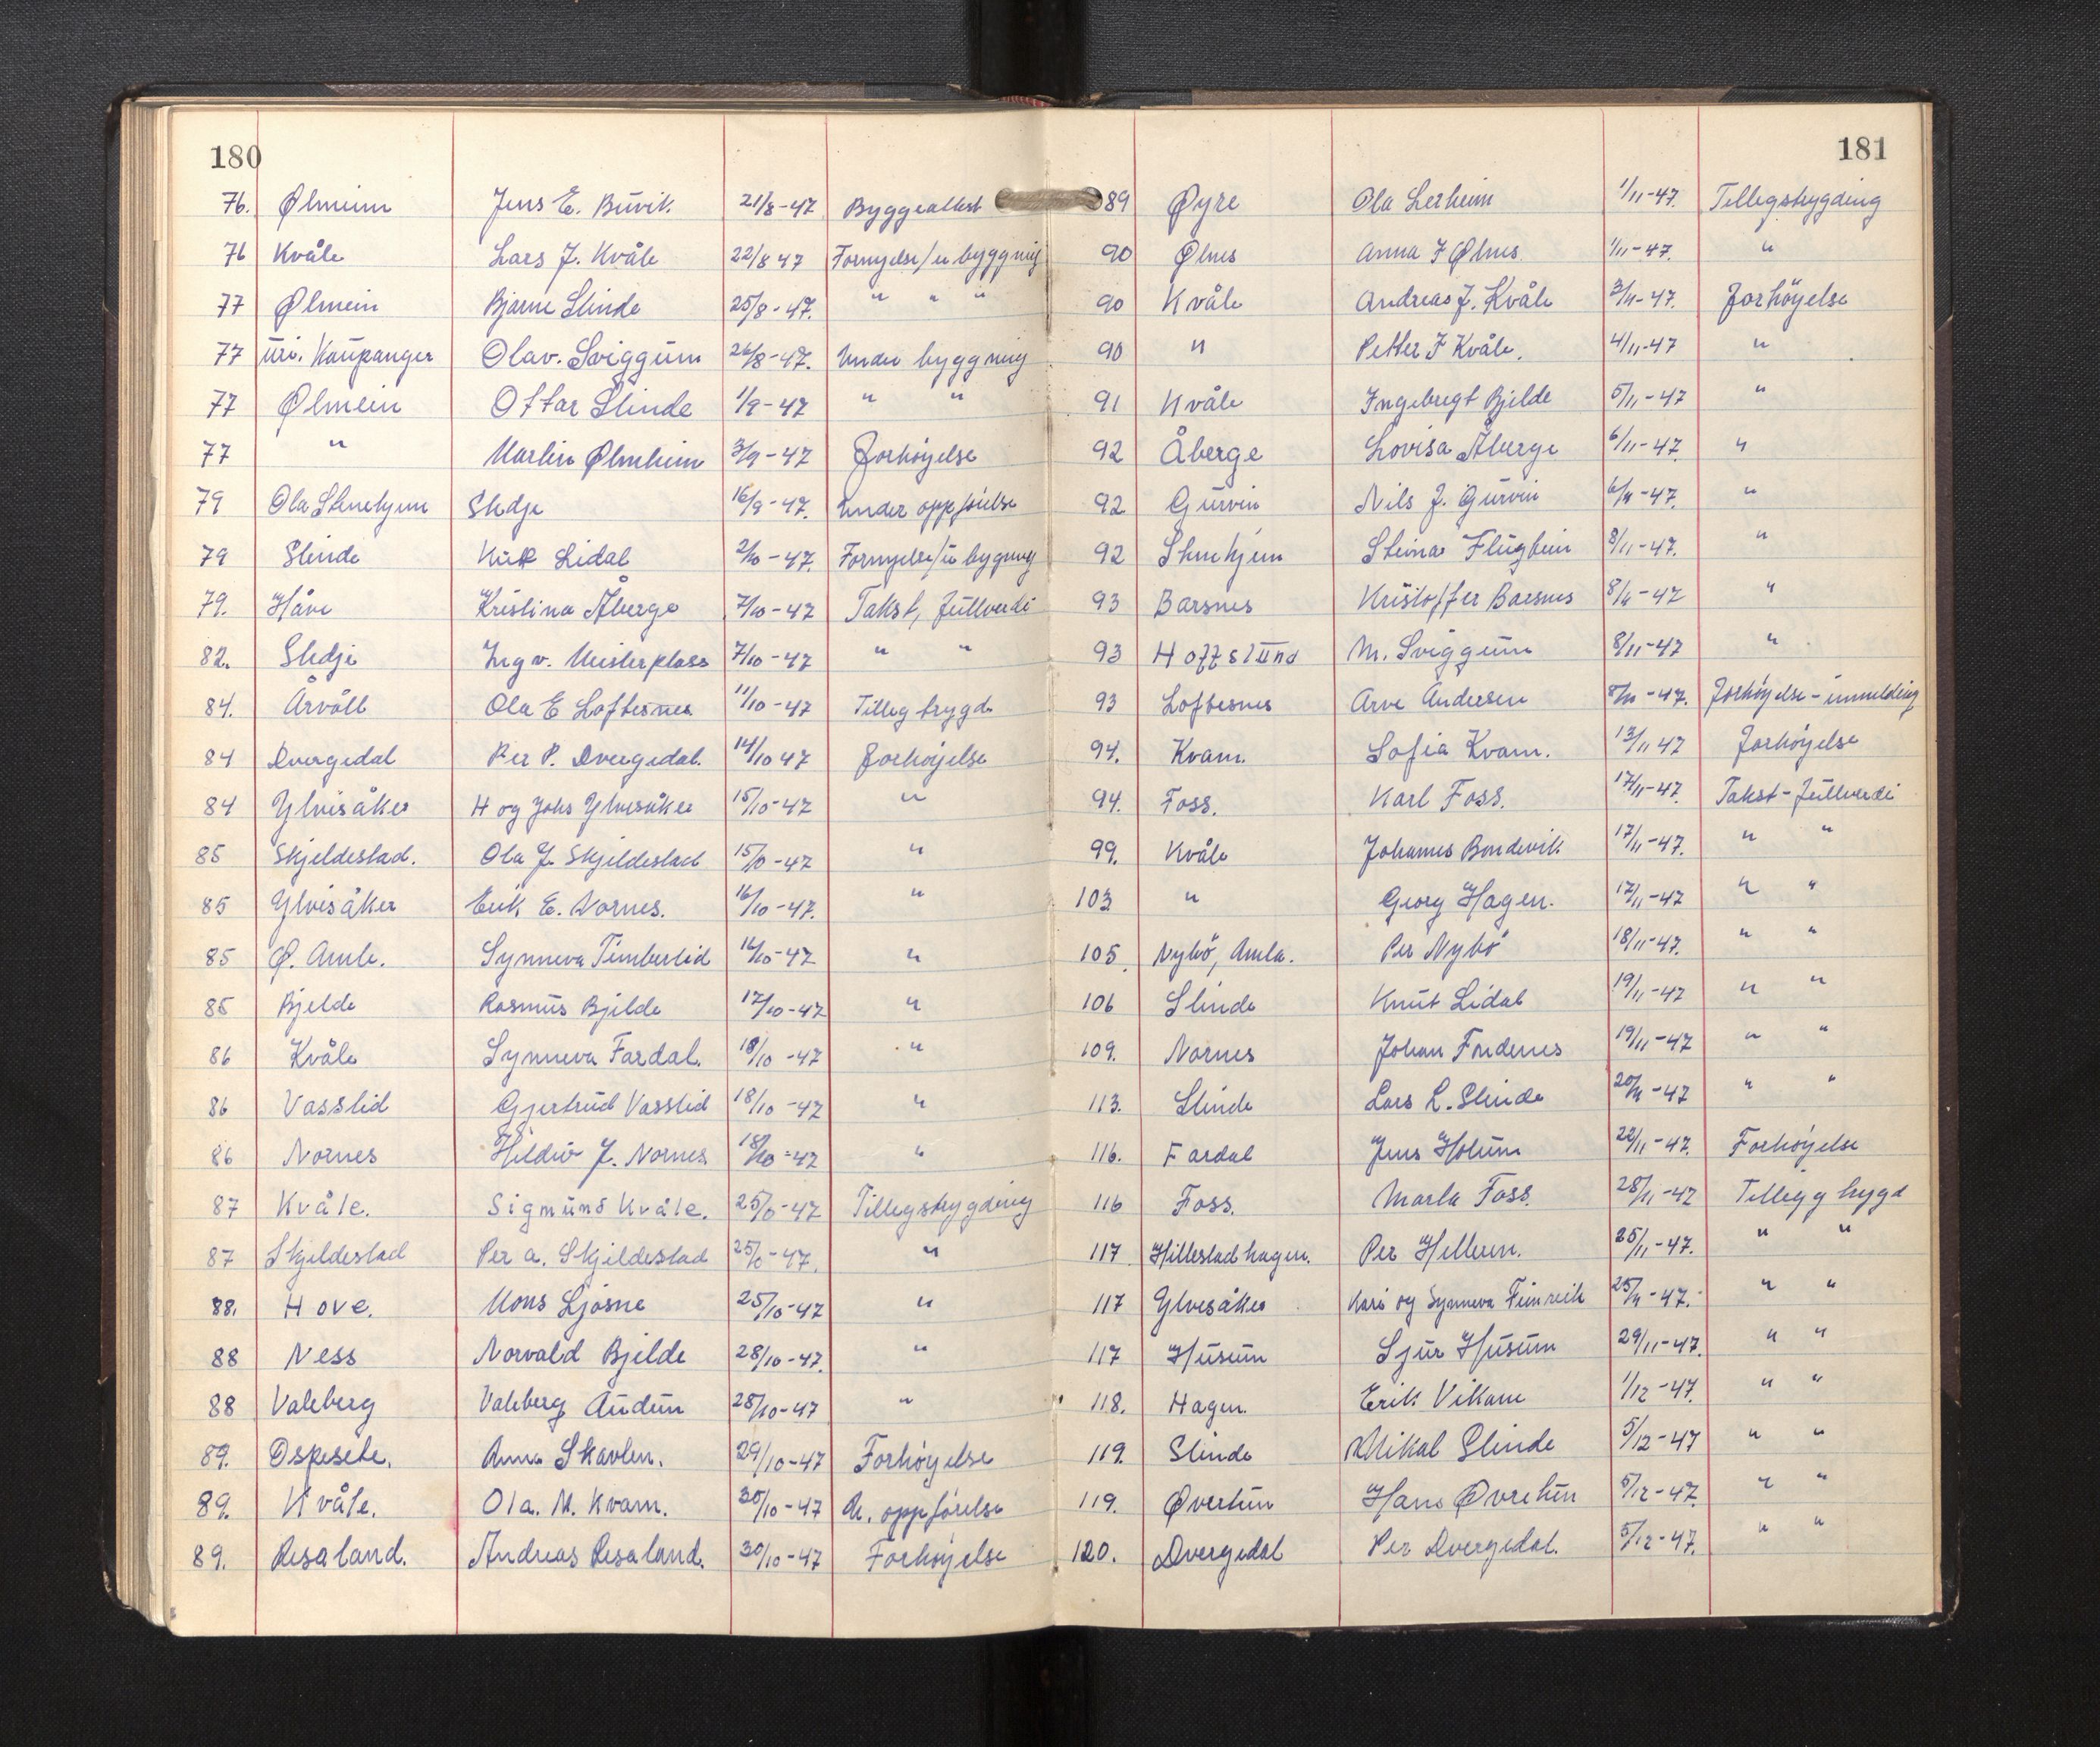 180
76. Ølmeim Jens E. Buvik. 21/8-47 Byggeattest
76 Kvåle Lars J. Kvåle 22/8 47 Fornyelse/u byggning
77 Ølmein Bjarne Slinde 25/8-47. " " "
77 Uri. Kaupanger Olav. Sviggum 26/8-47. Under byggning
77 Ølmein Ottar Slinde 1/9-47 " "
77 " Martin Ølmheim 3/9-47 Forhøyelse
79 Ola Stenehjem Stedje 16/9-47. Under oppførelse
79 Slinde Lidal 2/10-47. Fornyelse/u bygning
79. Håve Kristina Åberge 7/10-47 Takst, Fullverdi
82. Stedje Ingv. Meisterplass 7/10-47 " "
84. Årvoll Ola E Loftesnes 11/10-47 Tillegbygd.
84 Dvergedal Per P. Dvergedal. 14/10 47 Forhøyelse
84 Ylvisåker H og Johs Ylvisåker 15/10-47 "
85 Skjeldestad. Ola J. Skjeldestad 15/10-47 "
85 Ylvisåker Erik E. Nornes. 16/10-47. "
85 Ø. Amle. Synneva Timberlid 16/10-47 "
85 Bjelde Rasmus Bjelde 17/10-47 "
86 Kvåle Synneva Fardal. 18/10-47 "
86 Vasslid Gjertrud Vasslid 18/10-47 "
86 Nornes Hildur J. Nornes 18/10-47 "
87 Kvåle. Sigmund Kvåle. 25/10-47 Tillegsbygding
87 Skjeldestad Per A. Skjeldestad 25/10-47. "
88. Hove. Mons Ljøsne 25/10-47 "
88 Ness Norvald Bjelde 28/10-47. "
88 Valeberg Valeberg Audun 28/10-47 "
89. Ospesete. Anna Skavlen. 29/10-47 Forhøyelse
89. Kvåle. Ola. M. Kvam. 30/10-47 U. oppførelse
89. Resaland. Andreas Resaland. 30/10-47 Forhøyelse
181
89 Øyre Ola Lerheim 1/11-47. Tillegsbygding
90 Ølnes Anna J Ølnes. 1/11-47. "
90 Kvåle Andreas J. Kvåle 3/11-47. Forhøyelse
90 " Petter J Kvåle. 4/11-47 "
91 Kvåle Ingebregt Bjelde 5/11-47 "
92 Åberge Lovisa Åberge 6/11-47. "
92 Gurvin Nils J. Gurvin 6/11-47. "
92 Stenehjem Steinar Flugheim 8/11-47. "
93 Barsnes Kristoffer Barsnes 8/11-47 "
93 Hoffslund M. Sviggum 8/11-47 "
93 Loftesnes Arve Andersen 8/11-47. Forhøyelse-innmelding
94. Kvam. Sofia Kvam. 13/11 47 Forhøyelse
94. Foss. Karl Foss. 17/11-47. Takst-Fullverdi
99. Kvåle Johannes Bondevik 17/11-47. " "
103 " Georg Hagen. 17/11-47 " "
105. Nybø, Amla. Per Nybø 18/11-47. " "
106 Slinde Knut Lidal 19/11-47 " "
109. Nornes Johan Frudenes 19/11-47 " "
113. Slinde Lars L. Slinde 20/11-47 " "
116. Fardal Jens Holum 22/11-47. Forhøyelse
116 Foss. Marta Foss. 28/11-47 Tillegg bygd
117 Hillestadhagen. Per Hilleren. 25/11-47. " "
117 Ylvesåker Kari og Synneva Fimreite 25/11-47. " "
117 Husum Sjur Husum 29/11-47. " "
118. Hagen. Erik Vikane 1/12-47. " "
119. Slinde Mikal Slinde 5/12-47 " "
119. Øvretun Hans Øvretun 5/12-47. " "
120. Dvergedal Per Dvergedal. 5/12-47. " "